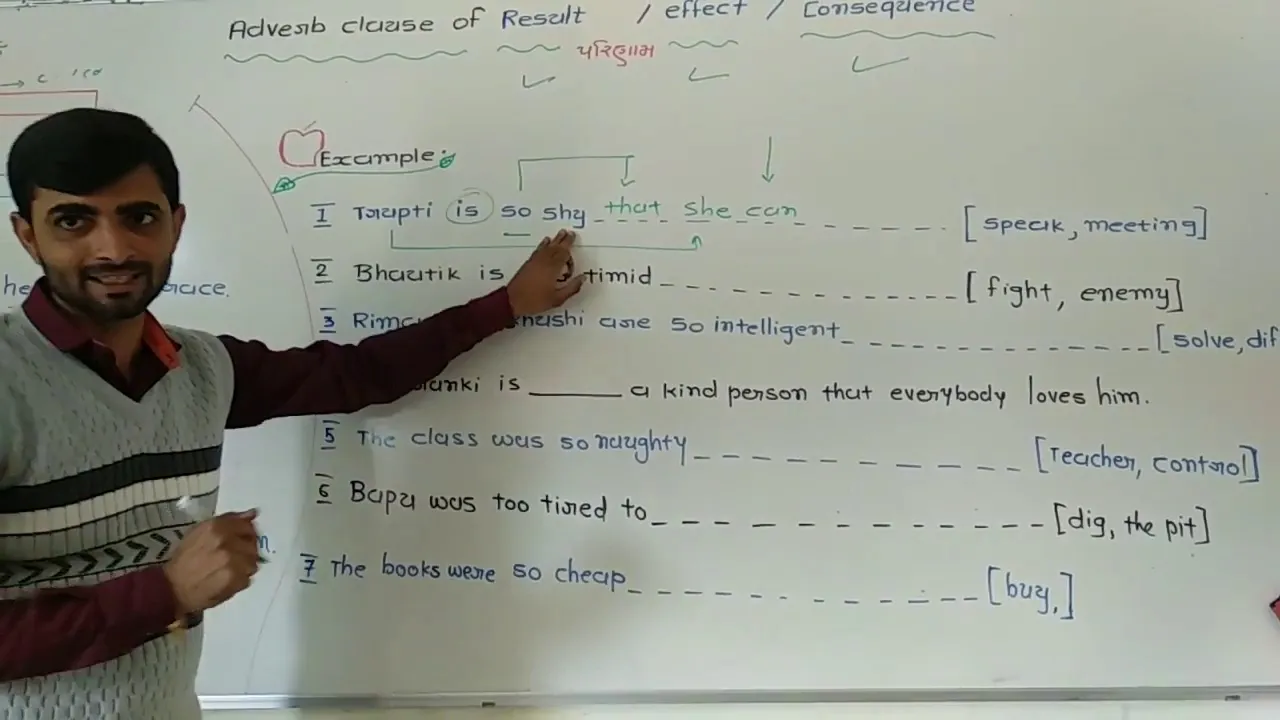 Adverb clause of Result / effect / Consequence
પરિણામ
Example:
1 Trupti is so shy that she can [speak, meeting]
2 Bhautik is timid [fight, enemy]
3 are so intelligent [solve, dif
is a kind person that everybody loves him.
5 The class was so naughty [Teacher, control]
6 Bapu was too tired to [dig, the pit]
7 The books were so cheap [buy,]